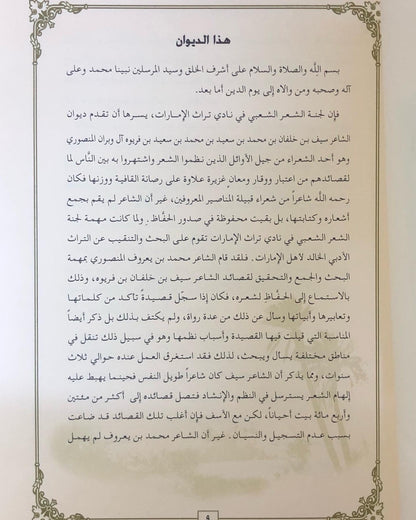 هذا الديوان
بسم اللَّه والصلاة والسلام على أشرف الخلق وسيد المرسلين نبينا محمد وعلى
آله وصحبه ومن والاه إلى يوم الدين أما بعد.
فإن لجنة الشعر الشعبي في نادي تراث الإمارات، يسرها أن تقدم ديوان
الشاعر سيف بن خلفان بن محمد بن سعيد بن محمد بن سعيد بن قريوه آل وبران المنصوري
وهو أحد الشعراء من جيل الأوائل الذين نظموا الشعر واشتهروا به بين النَّاس لما
لقصائدهم من اعتبار ووقار ومعانٍ غزيرة علاوة على رصانة القافية ووزنها فكان
رحمه اللَّه شاعراً من شعراء قبيلة المناصير المعروفين، غير أن الشاعر لم يقم بجمع
أشعاره وكتابتها، بل بقيت محفوظة في صدور الحفَّاظ. ولما كانت مهمة لجنة
الشعر الشعبي في نادي تراث الإمارات تقوم على البحث والتنقيب عن التراث
الأدبي الخالد لأهل الإمارات. فلقد قام الشاعر محمد بن يعروف المنصوري بمهمة
البحث والجمع والتحقيق لقصائد الشاعر سيف بن خلفان بن قريوه، وذلك
بالاستماع إلى الحفَّاظ لشعره، فكان إذا سجَّل قصيدةً تأكد من كلماتها
وتعابيرها وأبياتها وسأل عن ذلك من عدة رواة، ولم يكتف بذلك بل ذكر أيضاً
المناسبة التي قيلت فيها القصيدة وأسباب نظمها وهو في سبيل ذلك تنقل في
مناطق مختلفة يسأل ويبحث، لذلك فقد استغرق العمل عنده حوالي ثلاث
سنوات، ومما يذكر أن الشاعر سيف كان شاعراً طويل النفس فحينما يهبط عليه
إلهام الشعر يسترسل في النظم والإنشاد فتصل قصائده إلى أكثر من مئتين
وأربع مائة بيت أحياناً، لكن مع الأسف فإن أغلب تلك القصائد قد ضاعت
بسبب عدم التسجيل والنسيان. غير أن الشاعر محمد بن يعروف لم يهمل
٩